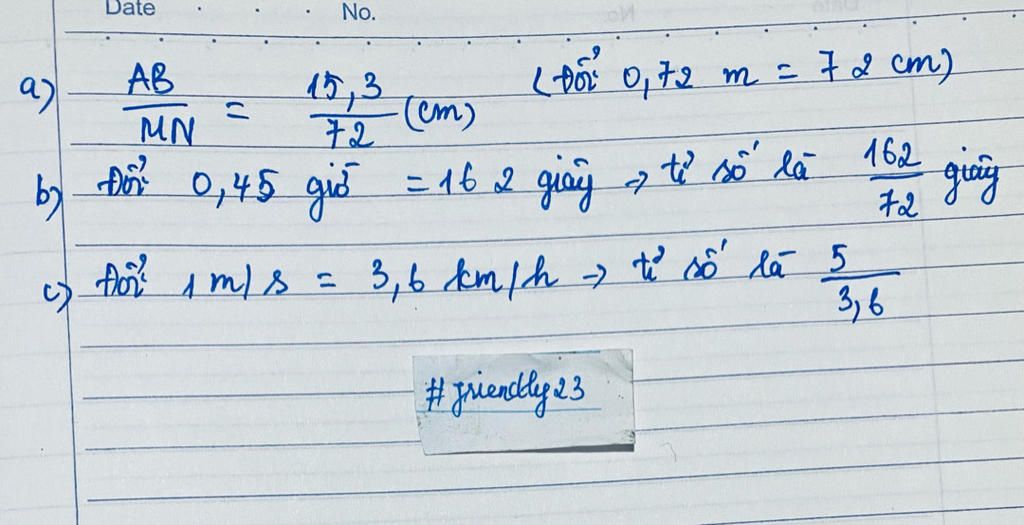 Date No.
a) AB/MN = 15,3/72 (cm) (Đổi 0,72 m = 72 cm)
b) Đổi 0,45 giờ = 162 giây → tỉ số là 162/72 giây
c) Đổi 1 m/s = 3,6 km/h → tỉ số là 5/3,6
#friendly23